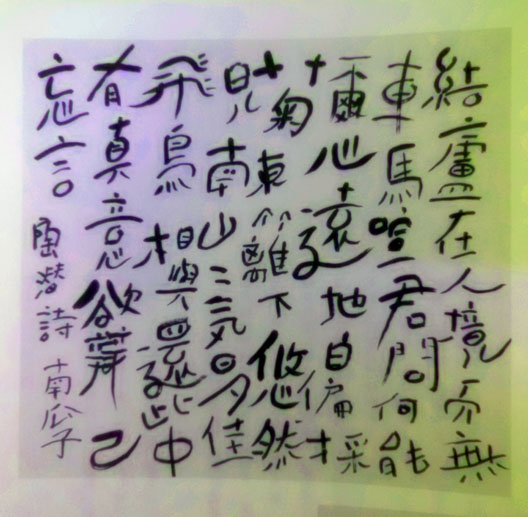 結廬在人境而無
車馬喧君問何能
爾心遠地自偏採
菊東籬下悠然
見南山〻氣日夕佳
飛鳥相與還此中
有真意欲辨己
忘言 陶潛詩 南瓜子